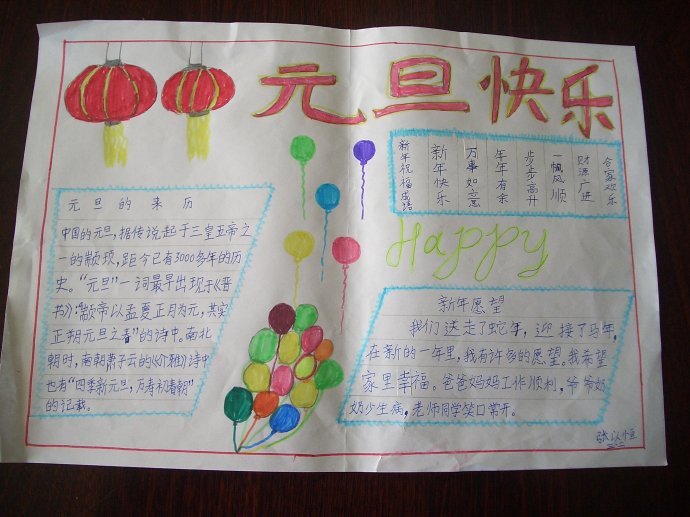 元旦快乐
新年祝福成语
新年快乐
万事如意
年年有余
步步高升
一帆风顺
财源广进
合家欢乐
元旦的来历
中国的元旦,据传说起于三皇五帝之
一的颛顼,距今已有3000多年的历
史。“元旦”一词最早出现于《晋
书》:“颛帝以孟夏正月为元,其实
正朔元旦之春”的诗中。南北
朝时,南朝萧子云的《介雅》诗中
也有“四季新元旦,万寿初春朝”
的记载。
Happy
新年愿望
我们送走了蛇年,迎接了马年,
在新的一年里,我有许多的愿望。我希望
家里幸福。爸爸妈妈工作顺利,爷爷奶
奶少生病,老师同学笑口常开。
张以恒